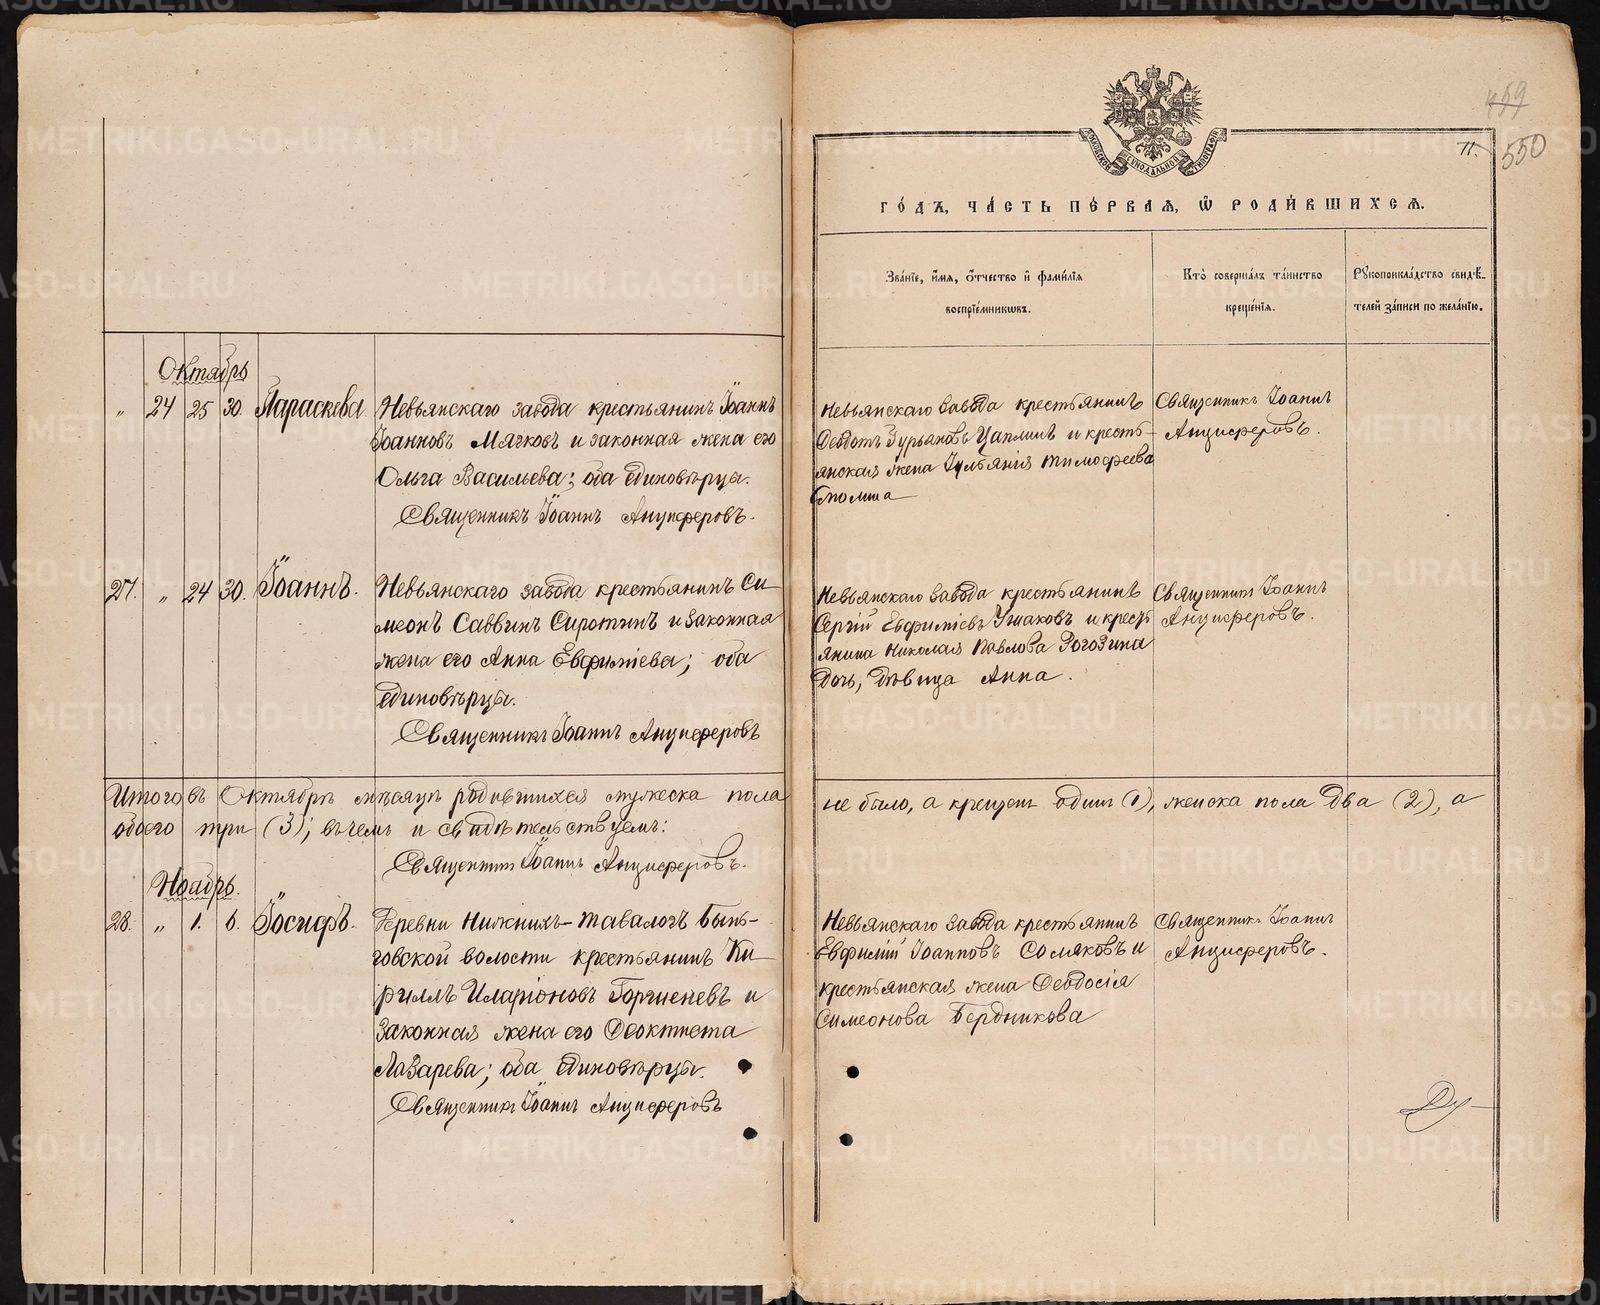 459
550
71.
МОСКОВСКОЙ СѴНОДАЛЬНОЙ ТИПОГРАФІИ
ГОДЪ, ЧАСТЬ ПЕРВАЯ, Ѡ РОДИВШИХСЯ.
Званіе, имя, отчество и фамилія
воспріемникωвъ.
Кто совершалъ таинство
крещенія.
Рꙋкоприкладство свидѣ-
телей записи по желанію.
Октябрь
„ 24 25 30. Параскева.
Невьянскаго завода крестьянинъ Іоаннъ
Іоанновъ Мягковъ и законная жена его
Ольга Васильева; оба единовѣрцы.
Священникъ Іоаннъ Анциферовъ.
Невьянскаго завода крестьянинъ
Ѳеодотъ Гурьяновъ Цаплинъ и кресть-
янская жена Іуліанія Тимофеева
Священникъ Іоаннъ
Анциферовъ.
27. „ 24 30. Іоаннъ.
Невьянскаго завода крестьянинъ Си-
меонъ Саввинъ Сиротинъ и законная
жена его Анна Евфиміева; оба
единовѣрцы.
Священникъ Іоаннъ Анциферовъ
Невьянскаго завода крестьянинъ
Сергій Евфиміевъ Ушаковъ и кресть
янина Николая Павлова Рогозина
дочь, дѣвица Анна.
Священникъ Іоаннъ
Анциферовъ.
Итого въ Октябрѣ мѣсяцѣ родившихся мужеска пола не было, а крещенъ одинъ (1), женска пола два (2), а
обоего три (3); въ чемъ и свидѣтельствуемъ:
Священникъ Іоаннъ Анциферовъ.
Ноабрь.
28. „ 1. 6. Іосифъ.
Деревни Нижнихъ-Тавологъ Бынь-
говской волости крестьянинъ Ки-
риллъ Иларіоновъ Горгиеневъ и
законная жена его Ѳеоктиста
Лазарева; оба единовѣрцы.
Священникъ Іоаннъ Анциферовъ
Невьянскаго завода крестьянинъ
Евфимій Іоанновъ Соляковъ и
крестьянская жена Ѳеодосія
Симеонова Бердникова
Священникъ Іоаннъ
Анциферовъ.
METRIKI.GASO-URAL.RU